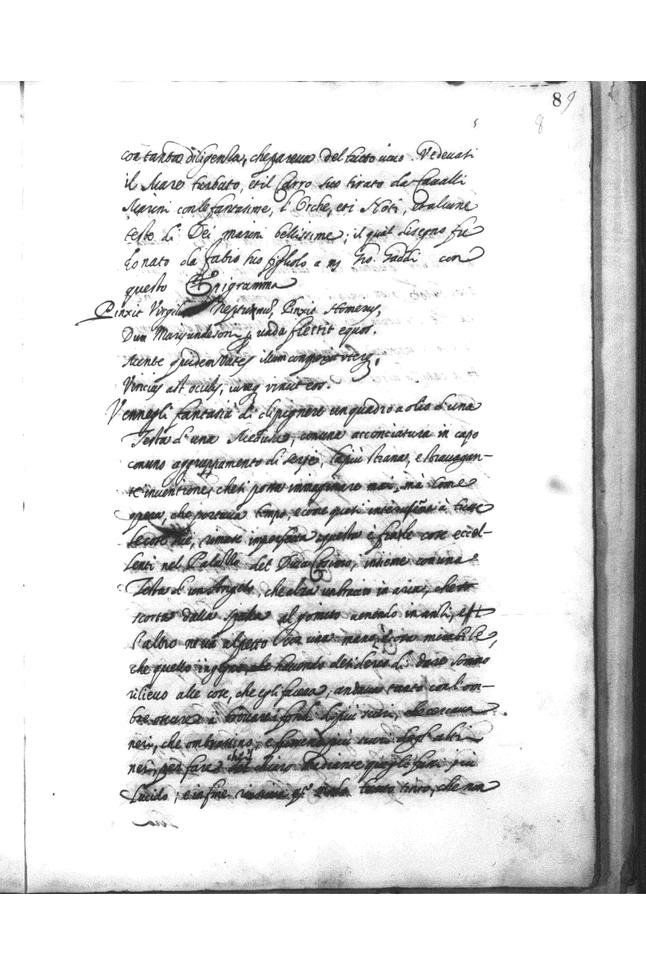 89
8
con tanta diligenza, che pareua del tutto uiuo. Vedeuati
il Mare turbato, et il Carro suo tirato da Caualli
Marini con le fantasime, l'Orche, et i Noti, et alcune
teste di Dei marini bellissime; il qual disegno fu
donato da Fabio suo figliolo a m Gio. Gaddi con
questo Epigramma
Pinxit Virgilius Neptunum, Pinxit Homerus,
Dum maris undisoni per uada flectit equos.
Mente quidem Vates illum conspexit uterq,
Vincius ast oculis, iureq vincit eos.
Vennegli fantasia di dipignere un quadro a olio d'una
Testa d'una Medusa, con una acconciatura in capo
con uno aggruppamento di serpi, la piu strana, e strauagan-
te inuentione, che si possa immaginare mai, mà come
opera, che portaua tempo, e come quasi interuiene à tutte
le cose sue, rimase imperfetta questa è frà le cose eccel-
lenti nel Palazzo del Duca Cosimo, insieme con una
Testa d'un Angelo, che alza un braccio in aria, che
scorta dalla spalla al gomito uenendo inanzi, e
l'altro ne và al petto con una mano,
che quello ingegno, che hauendo desiderio di dare sommo
rilieuo alle cose, che egli faceua, andaua tanto con l'om-
bre oscure à trouare i fondi de piu scuri, che cercaua
neri, che ombrassino, e fussino piu scuri degl'altri
neri, per fare chiaro mediante quegli fussi più
lucido, e in fine tanto tinto, che non